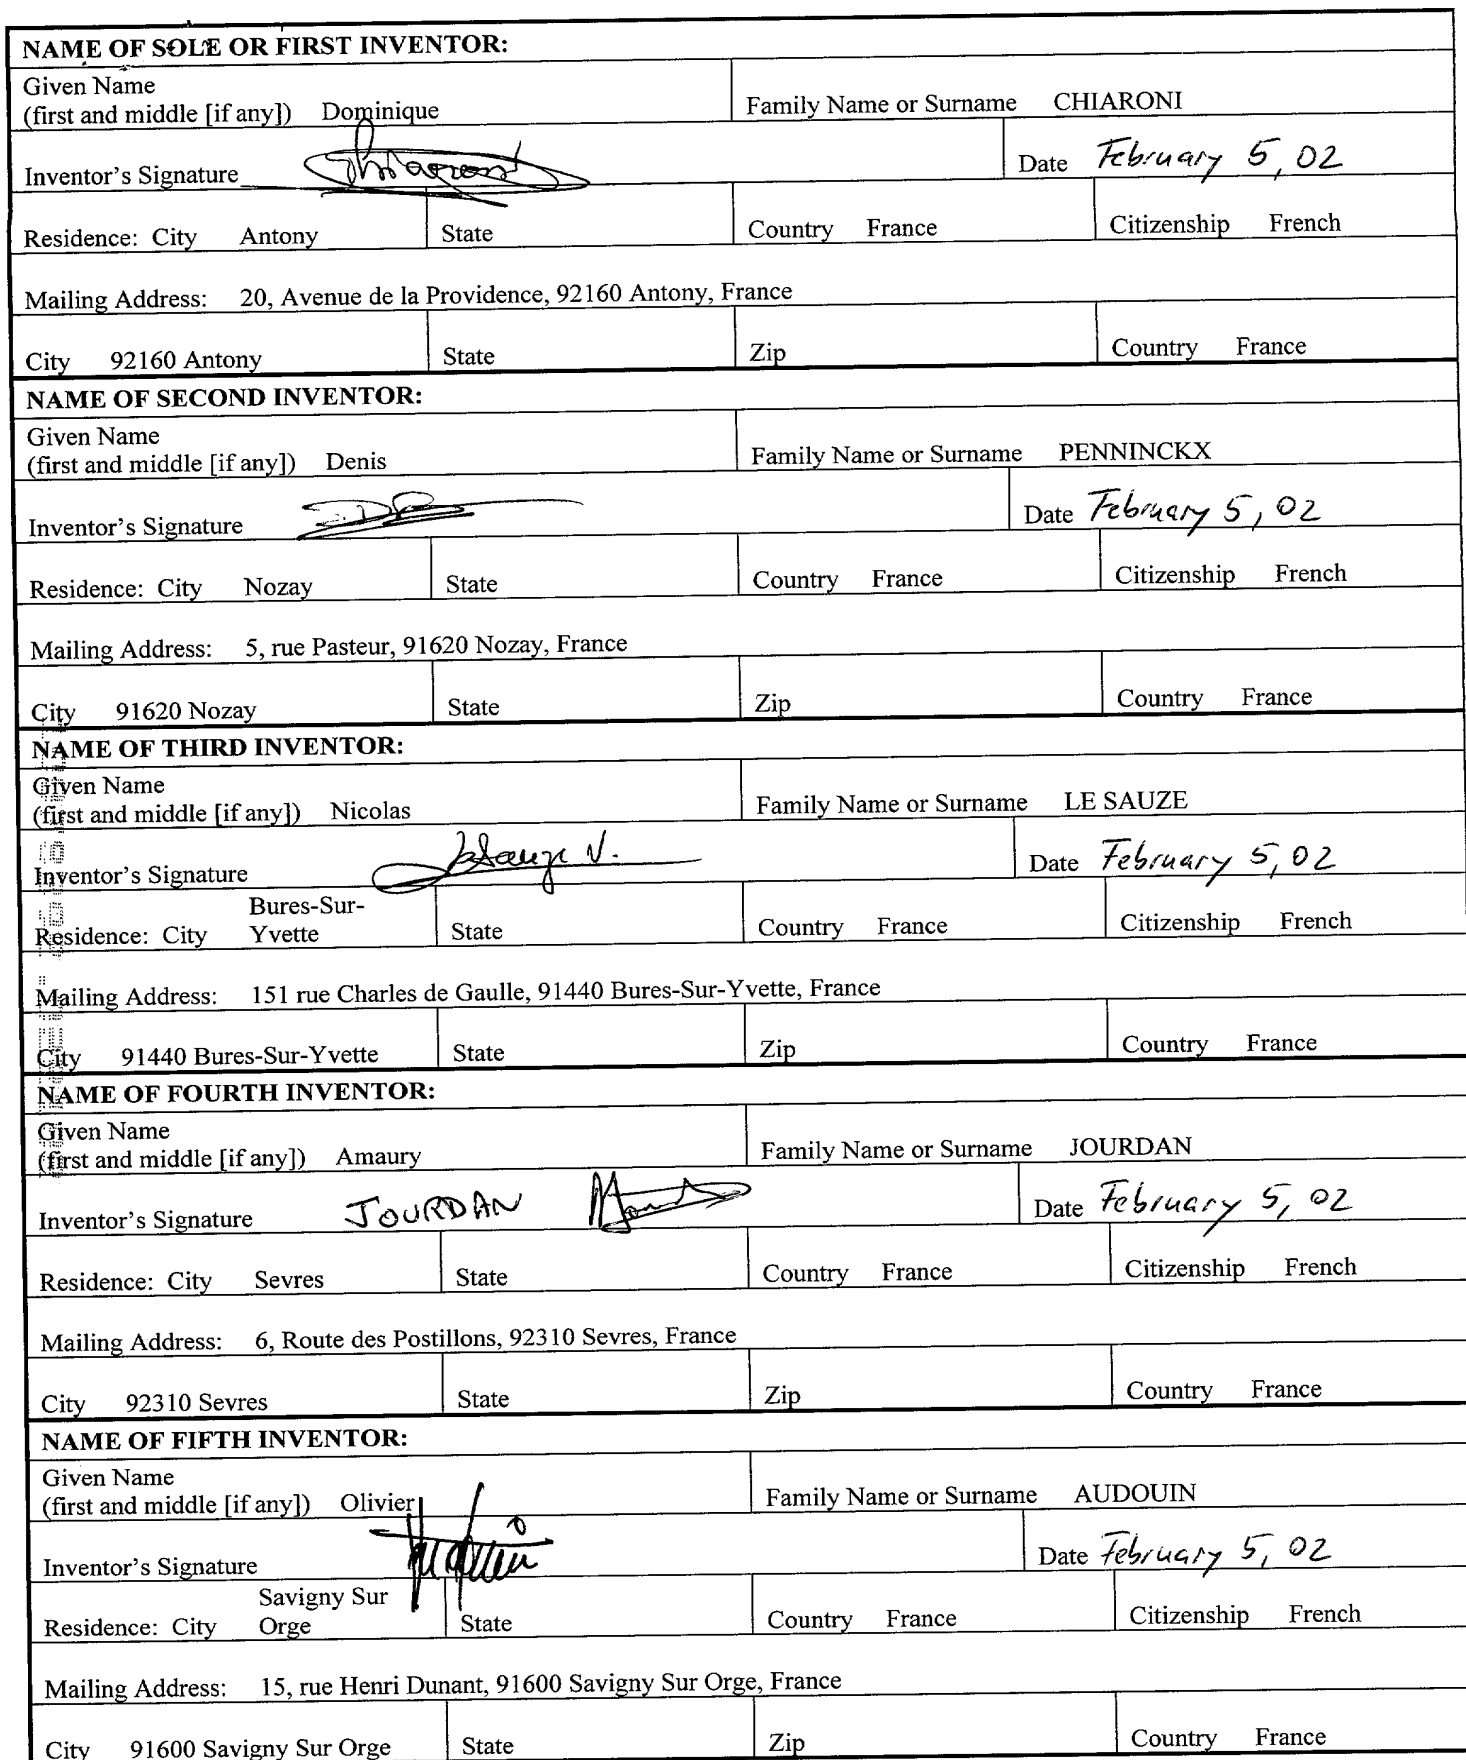 NAME OF SOLE OR FIRST INVENTOR:
Given Name
(first and middle [if any]) Dominique Family Name or Surname CHIARONI
Inventor's Signature Date February 5, 02
Residence: City Antony State Country France Citizenship French
Mailing Address: 20, Avenue de la Providence, 92160 Antony, France
City 92160 Antony State Zip Country France
NAME OF SECOND INVENTOR:
Given Name
(first and middle [if any]) Denis Family Name or Surname PENNINCKX
Inventor's Signature Date February 5, 02
Residence: City Nozay State Country France Citizenship French
Mailing Address: 5, rue Pasteur, 91620 Nozay, France
City 91620 Nozay State Zip Country France
NAME OF THIRD INVENTOR:
Given Name
(first and middle [if any]) Nicolas Family Name or Surname LE SAUZE
Inventor's Signature Date February 5, 02
Bures-Sur-
Residence: City Yvette State Country France Citizenship French
Mailing Address: 151 rue Charles de Gaulle, 91440 Bures-Sur-Yvette, France
City 91440 Bures-Sur-Yvette State Zip Country France
NAME OF FOURTH INVENTOR:
Given Name
(first and middle [if any]) Amaury Family Name or Surname JOURDAN
Inventor's Signature JOURDAN Date February 5, 02
Residence: City Sevres State Country France Citizenship French
Mailing Address: 6, Route des Postillons, 92310 Sevres, France
City 92310 Sevres State Zip Country France
NAME OF FIFTH INVENTOR:
Given Name
(first and middle [if any]) Olivier Family Name or Surname AUDOUIN
Inventor's Signature Date February 5, 02
Savigny Sur
Residence: City Orge State Country France Citizenship French
Mailing Address: 15, rue Henri Dunant, 91600 Savigny Sur Orge, France
City 91600 Savigny Sur Orge State Zip Country France